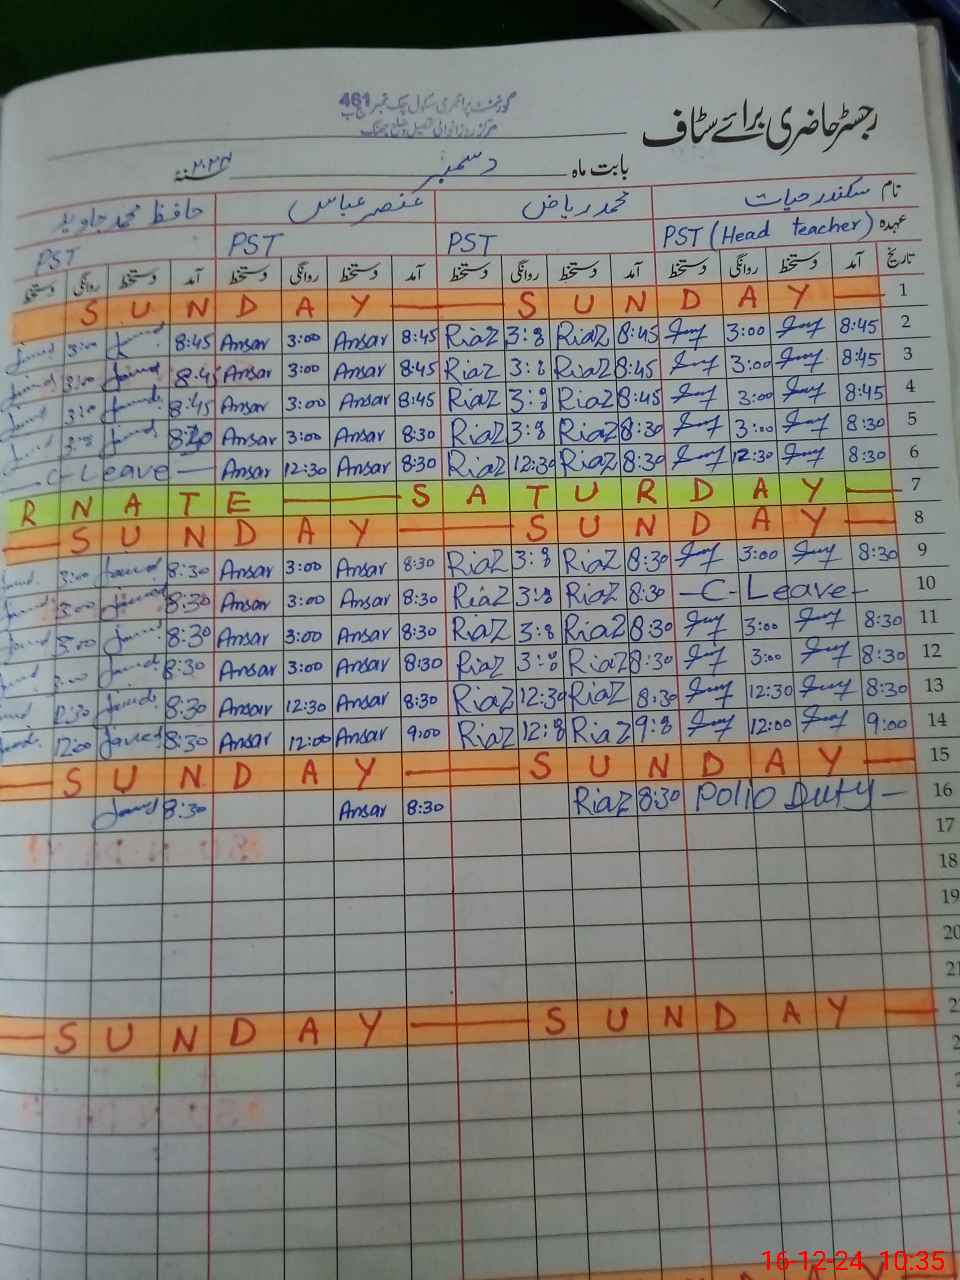 گورنمنٹ پرائمری سکول چک نمبر 461
رجسٹر حاضری برائے سٹاف
بابت ماہ دسمبر ۲۰۲۴
نام سکندر حیات محمد ریاض عنصر عباس حافظ محمد جاوید
عہدہ PST (Head teacher) PST PST PST
تاریخ آمد دستخط روانگی دستخط آمد دستخط روانگی دستخط آمد دستخط روانگی دستخط آمد دستخط روانگی دستخط
SUNDAY — SUNDAY — 1
3:00 8:45 Ansar 3:00 Ansar 8:45 Riaz 3:00 Riaz 8:45 3:00 8:45 2
3:00 8:45 Ansar 3:00 Ansar 8:45 Riaz 3:00 Riaz 8:45 3:00 8:45 3
3:00 8:45 Ansar 3:00 Ansar 8:45 Riaz 3:00 Riaz 8:45 3:00 8:45 4
Ansar 3:00 Ansar 8:30 Riaz 3:00 Riaz 8:30 3:00 8:30 5
C-Leave — Ansar 12:30 Ansar 8:30 Riaz 12:30 Riaz 8:30 12:30 8:30 6
RNATE — SATURDAY — 7
— SUNDAY — SUNDAY — 8
3:00 8:30 Ansar 3:00 Ansar 8:30 Riaz 3:00 Riaz 8:30 3:00 8:30 9
3:00 8:30 Ansar 3:00 Ansar 8:30 Riaz 3:00 Riaz 8:30 — C-Leave — 10
3:00 8:30 Ansar 3:00 Ansar 8:30 Riaz 3:00 Riaz 8:30 3:00 8:30 11
3:00 8:30 Ansar 3:00 Ansar 8:30 Riaz 3:00 Riaz 8:30 3:00 8:30 12
12:30 8:30 Ansar 12:30 Ansar 8:30 Riaz 12:30 Riaz 8:30 12:30 8:30 13
12:00 8:30 Ansar 12:00 Ansar 9:00 Riaz 12:00 Riaz 9:00 12:00 9:00 14
— SUNDAY — SUNDAY — 15
8:30 Ansar 8:30 Riaz 8:30 Polio Duty — 16
17
18
19
20
21
— SUNDAY — SUNDAY —
16-12-24 10:35